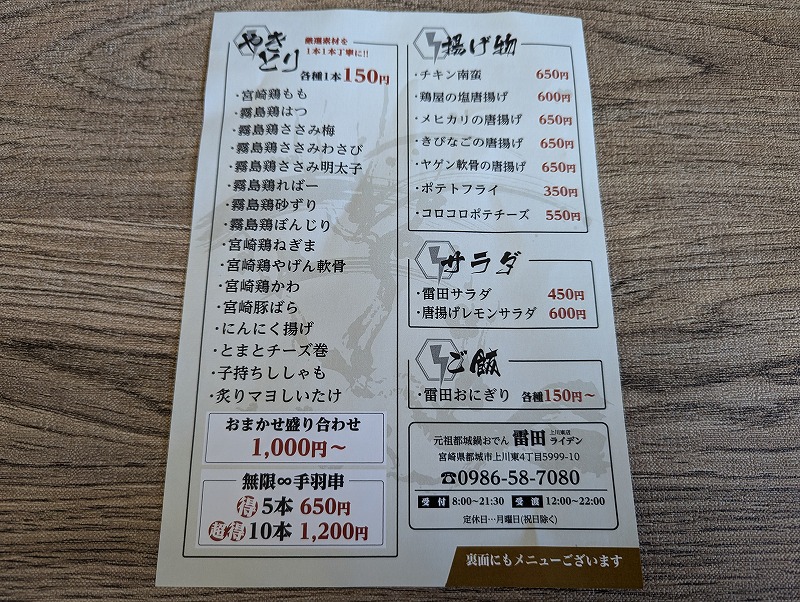 やきとり
厳選素材を
1本1本丁寧に!!
各種1本150円
・宮崎鶏もも
・霧島鶏はつ
・霧島鶏ささみ梅
・霧島鶏ささみわさび
・霧島鶏ささみ明太子
・霧島鶏ればー
・霧島鶏砂ずり
・霧島鶏ぼんじり
・宮崎鶏ねぎま
・宮崎鶏やげん軟骨
・宮崎鶏かわ
・宮崎豚ばら
・にんにく揚げ
・とまとチーズ巻
・子持ちししゃも
・炙りマヨしいたけ
おまかせ盛り合わせ
1,000円～
無限∞手羽串
得 5本 650円
超得 10本 1,200円
揚げ物
・チキン南蛮 650円
・鶏屋の塩唐揚げ 600円
・メヒカリの唐揚げ 650円
・きびなごの唐揚げ 650円
・ヤゲン軟骨の唐揚げ 650円
・ポテトフライ 350円
・コロコロポテチーズ 550円
サラダ
・雷田サラダ 450円
・唐揚げレモンサラダ 600円
ご飯
・雷田おにぎり 各種150円～
元祖都城鍋おでん 雷田 上川東店 ライデン
宮崎県都城市上川東4丁目5999-10
☎0986-58-7080
受付 8:00~21:30 受渡 12:00~22:00
定休日…月曜日(祝日除く)
裏面にもメニューございます